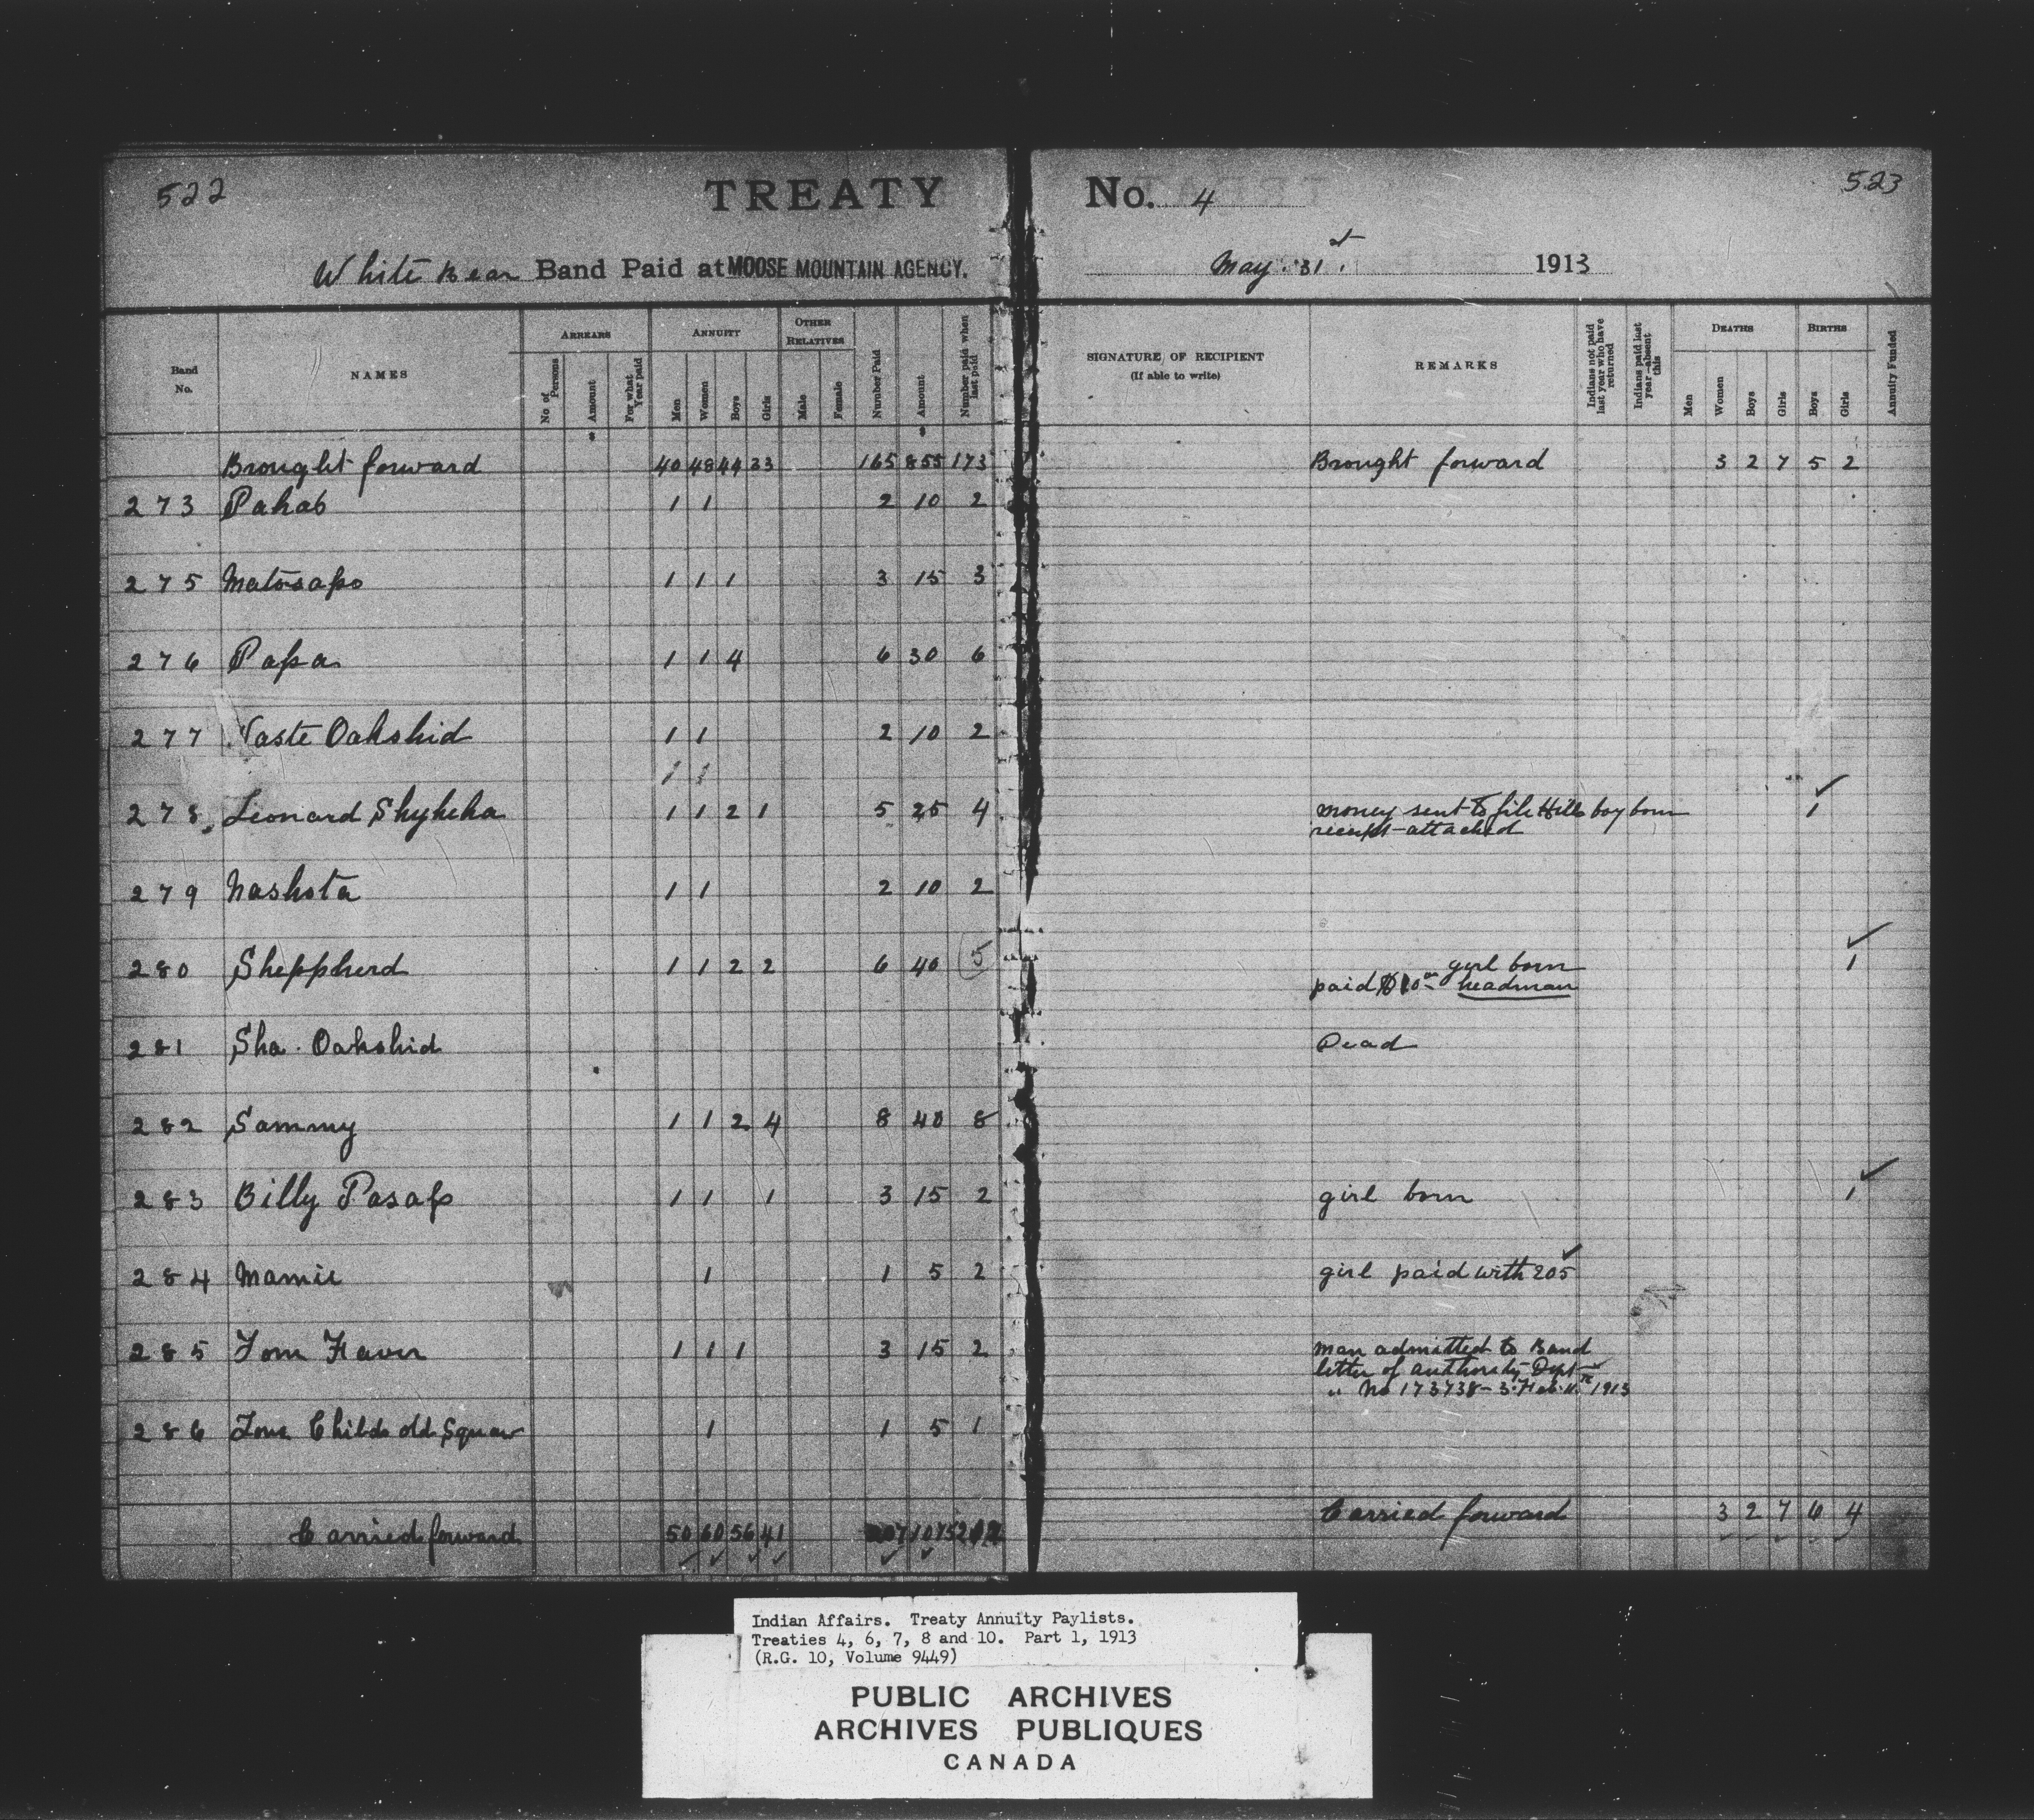 522
TREATY
No. 4
523
White Bear Band Paid at MOOSE MOUNTAIN AGENCY.
May 31st 1913
Band No. NAMES ARREARS ANNUITY OTHER RELATIVES
No. of Persons Amount For what Year paid Men Women Boys Girls Male Female Number Paid Amount Number paid when last paid
SIGNATURE OF RECIPIENT (If able to write) REMARKS Indians not paid last year who have returned Indians paid last year—absent this DEATHS BIRTHS
Men Women Boys Girls Boys Girls Annuity Funded
Brought forward 40 48 44 33 165 855 173 Brought forward 3 2 7 5 2
273 Pahab 1 1 2 10 2
275 Matosapo 1 1 1 3 15 3
276 Papa 1 1 4 6 30 6
277 Waste Oakshid 1 1 2 10 2
278 Leonard 1 1 2 1 5 25 4 money sent to file Hills boy born 1
receipt attached
279 Nashota 1 1 2 10 2
280 Sheppherd 1 1 2 2 6 40 5 girl born 1
paid $10 headman
281 Sha Oakshid Dead
282 Sammy 1 1 2 4 8 40 8
283 Billy Pasap 1 1 1 3 15 2 girl born 1
284 Mamie 1 1 5 2 girl paid with 205
285 Tom 1 1 1 3 15 2 man admitted to Band
letter of authority Dept
" No 173738-3 Feb 1913
286 Childs old Squaw 1 1 5 1
Carried forward 50 60 56 41 207 1075 212 Carried forward 3 2 7 6 4
Indian Affairs. Treaty Annuity Paylists.
Treaties 4, 6, 7, 8 and 10. Part 1, 1913
(R.G. 10, Volume 9449)
PUBLIC ARCHIVES
ARCHIVES PUBLIQUES
CANADA